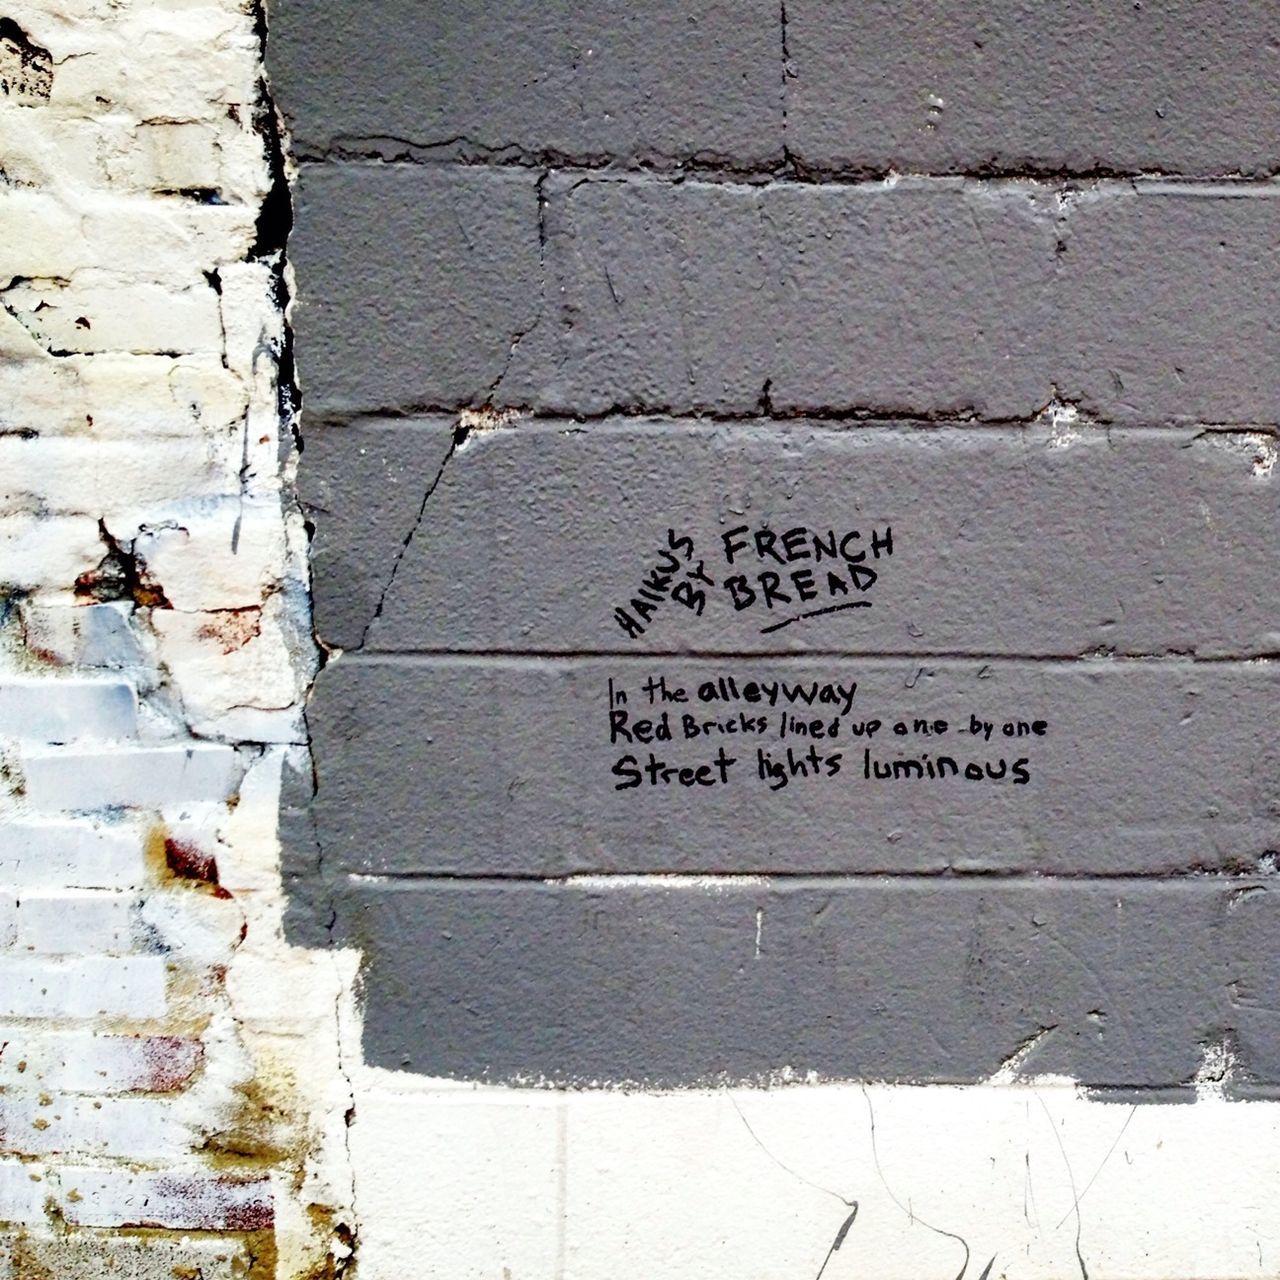 HAIKUS
BY
FRENCH
BREAD
In the alleyway
Red Bricks lined up one-by one
Street lights luminous